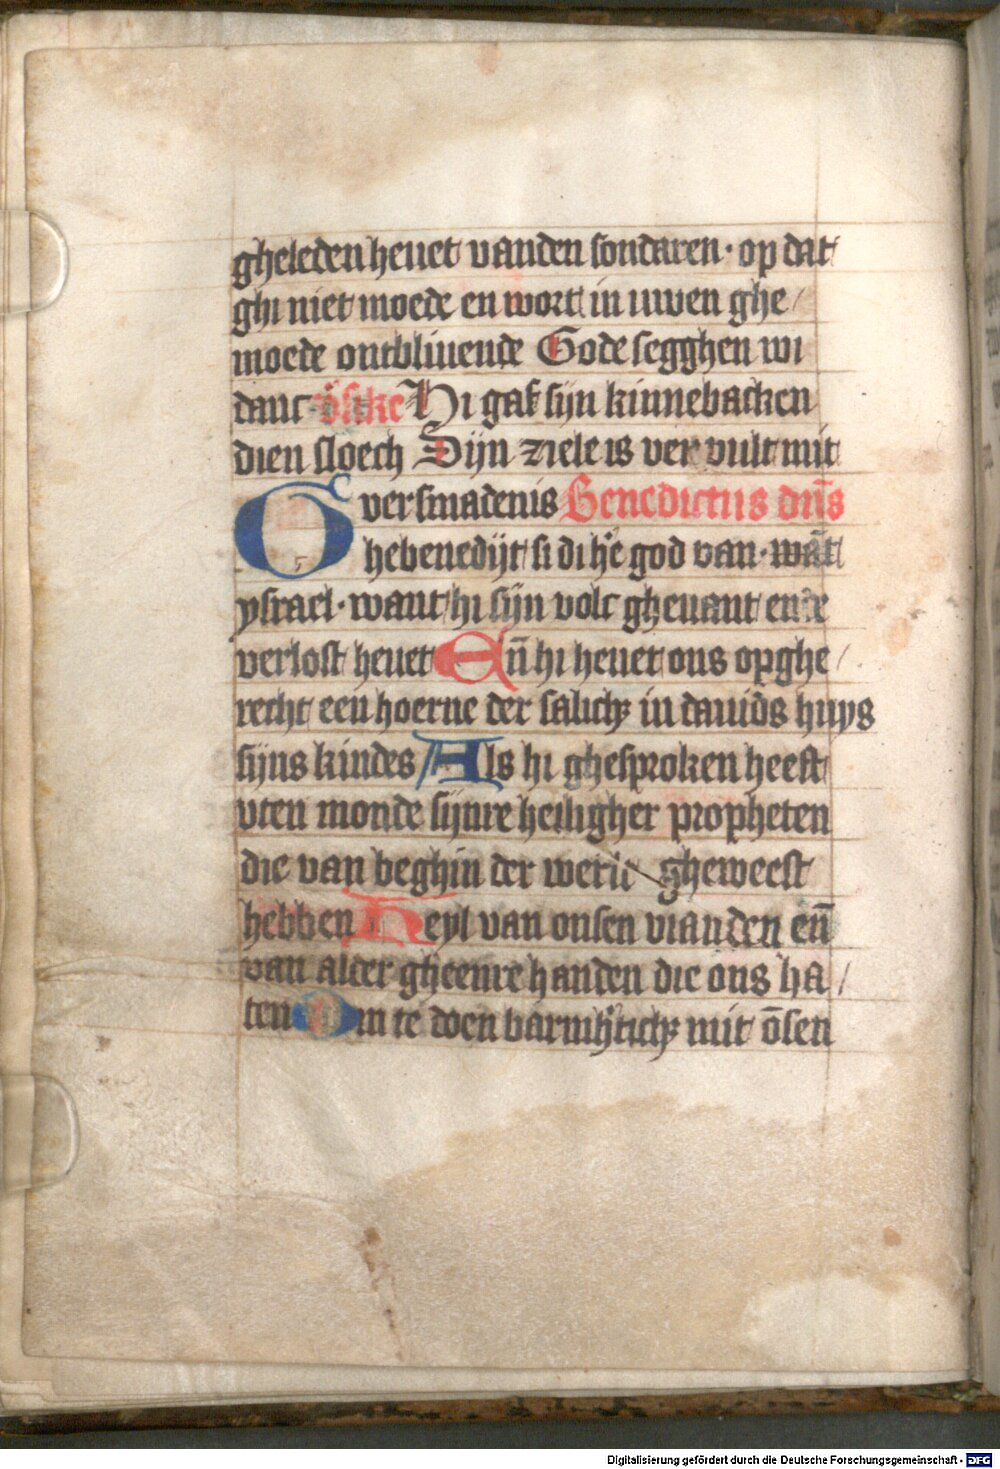 gheleden heuet vanden sondaren · op dat
ghi niet moede en wort in uwen ghe /
moede ontbliuende Gode segghen wi
danc v̄ske Hi gaf sijn kinnebacken
dien sloech Sijn ziele is ver vult mit
versmadenis Benedictus dn̄s
Ghebenedijt si di he god van · wāt
ysrael · want hi sijn volc gheuant ende
verlost heuet En̄ hi heuet ons opghe /
recht een hoerne der salich̄ in dauids huys
sijns kindes Als hi ghesproken heeft
vten monde sijnre heiligher propheten
die van beghin der werlt gheweest
hebben Heyl van onsen vianden en̄
van alder gheenre handen die ons ha /
ten Om te doen barmh̄tich̄ mit ōsen
Digitalisierung gefördert durch die Deutsche Forschungsgemeinschaft - DFG